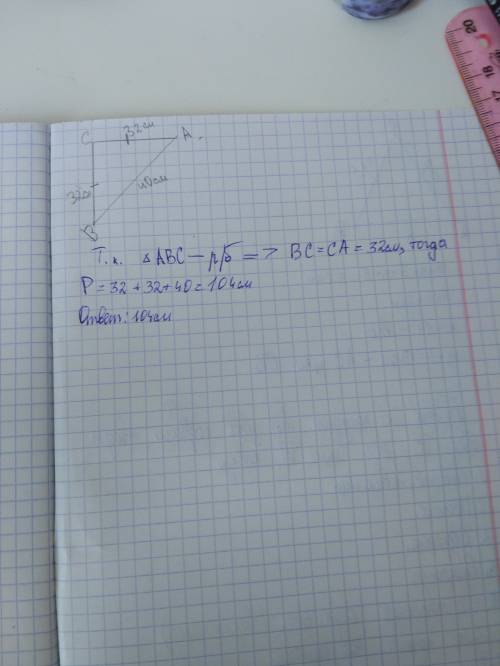 C 32см A
32см
40см
B
Т.к. △ABC — р/б => BC = CA = 32см, тогда
P = 32 + 32 + 40 = 104см
Ответ: 104см
20
18
17